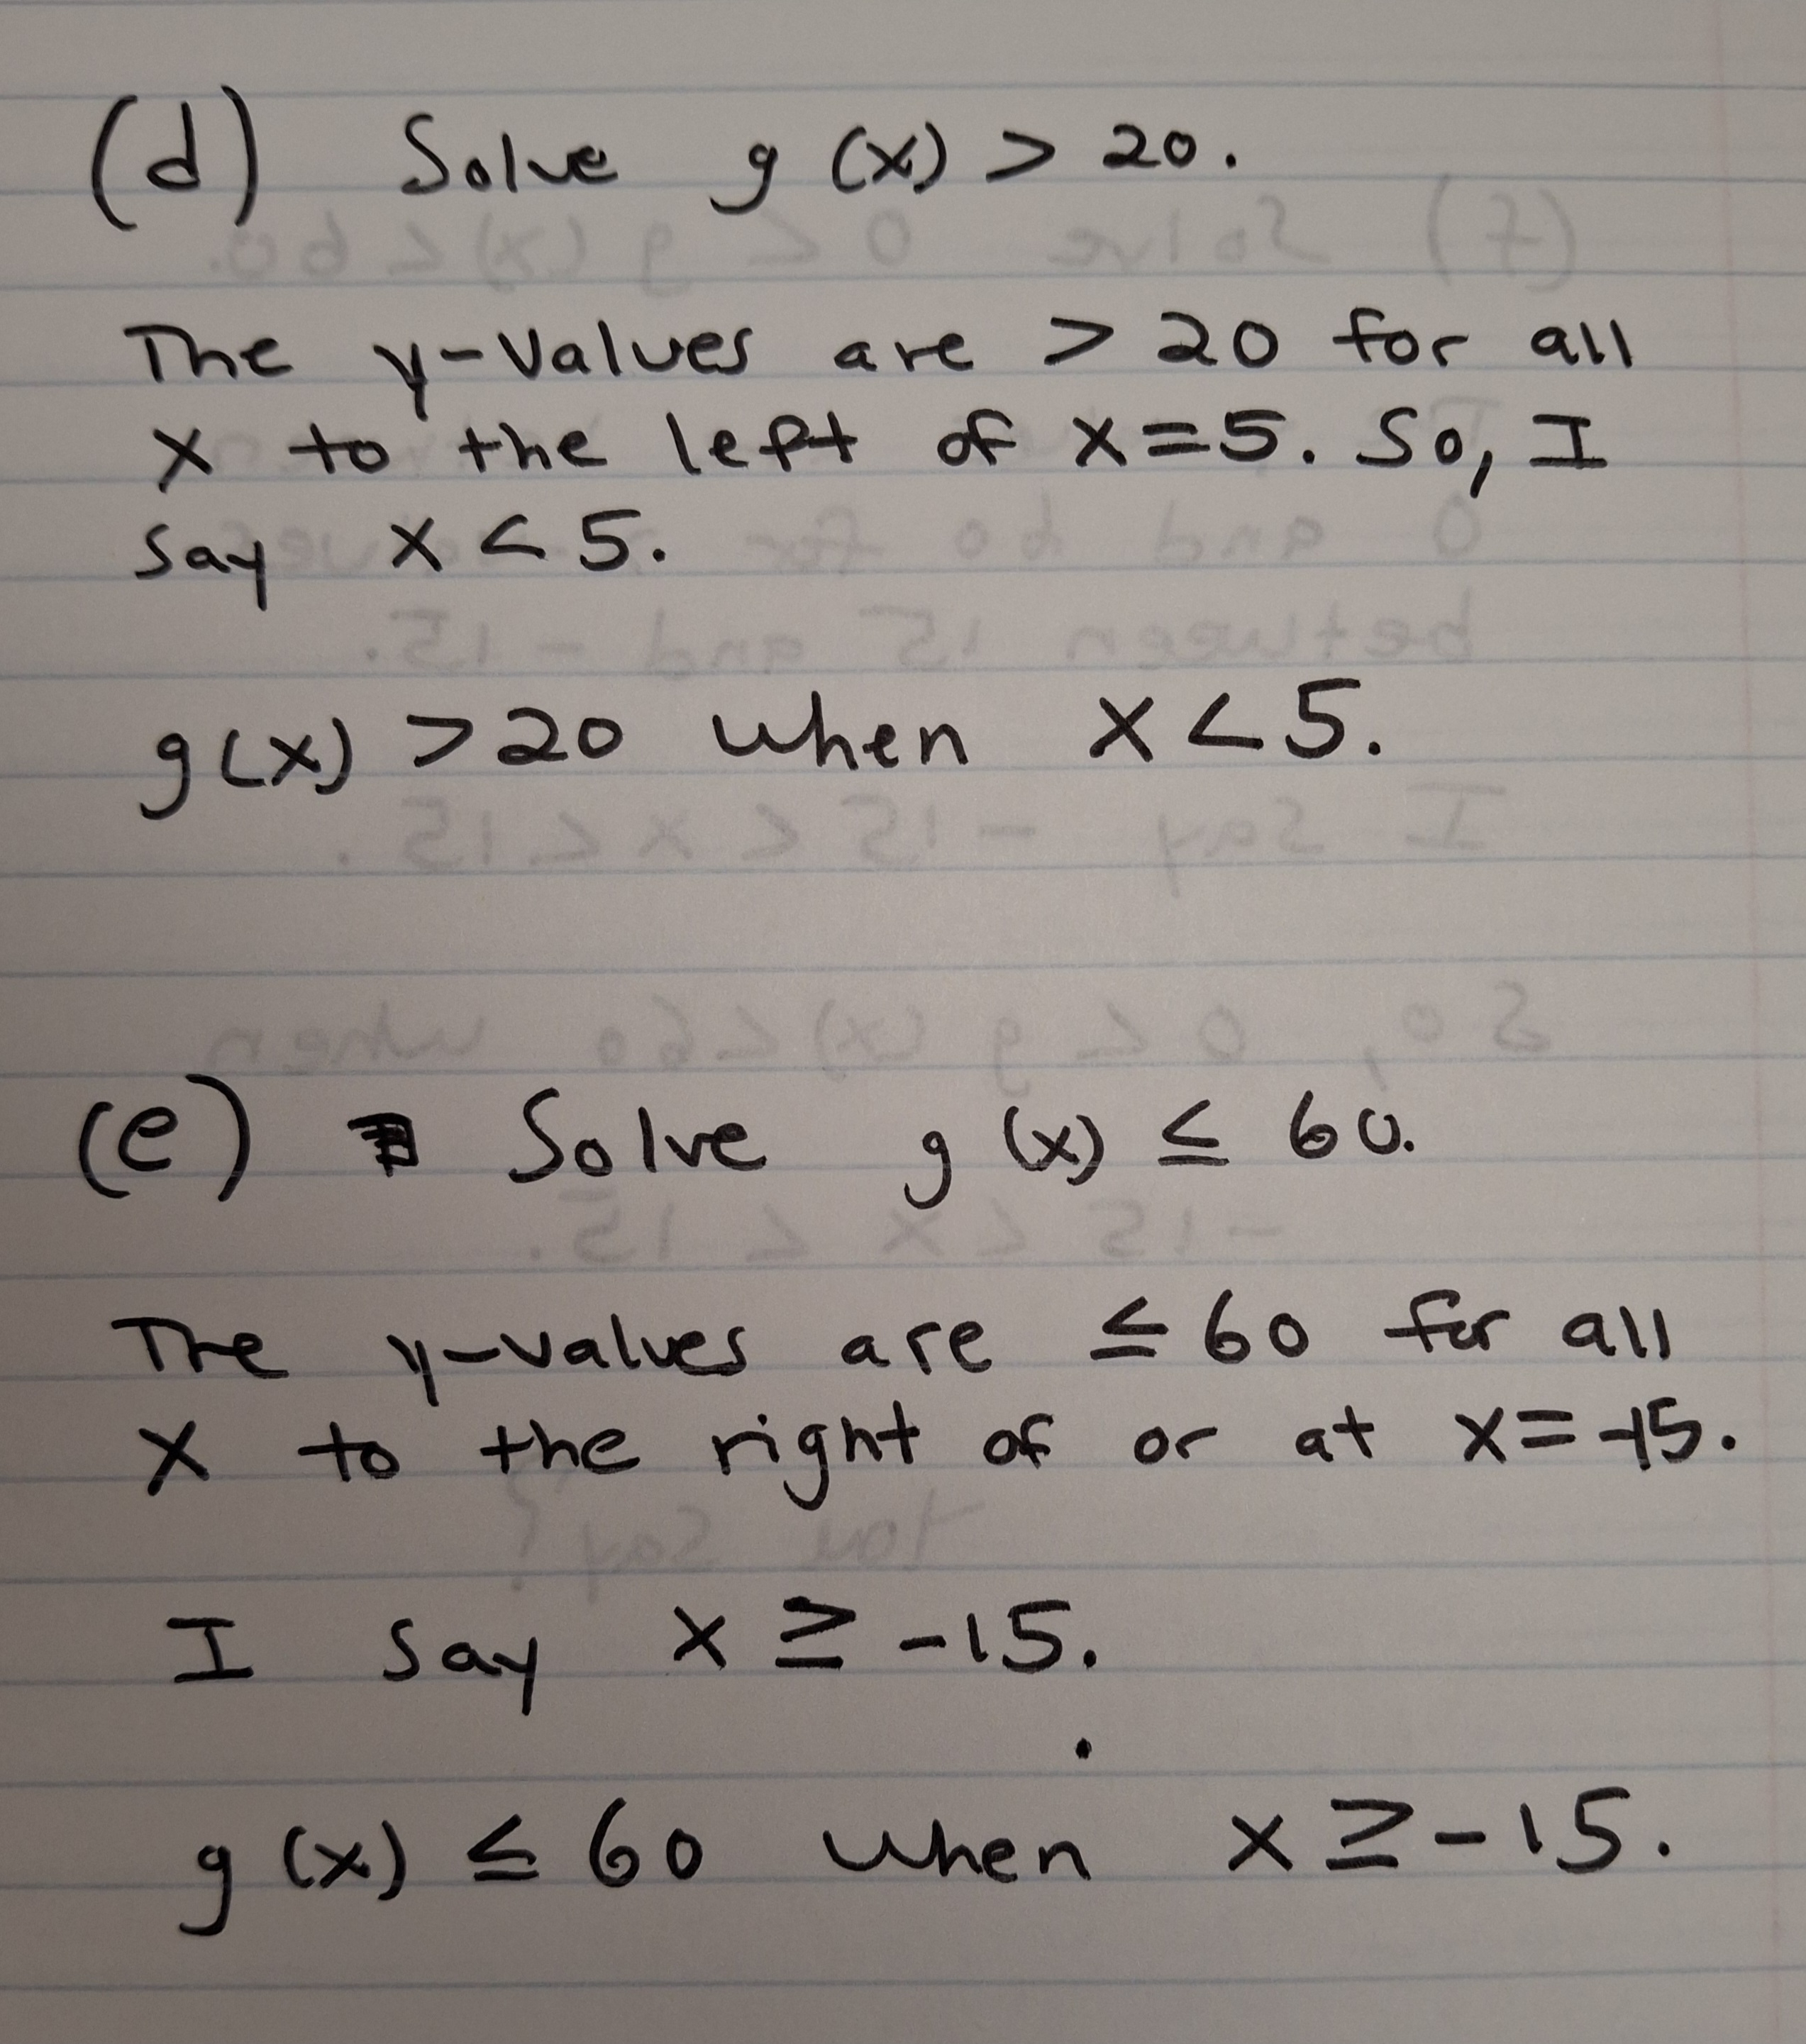 (d) Solve g(x) > 20.
The y-values are > 20 for all
x to the left of x=5. So, I
say x < 5.
g(x) > 20 when x < 5.
(e) Solve g(x) ≤ 60.
The y-values are ≤ 60 for all
x to the right of or at x=-15.
I say x ≥ -15.
g(x) ≤ 60 when x ≥ -15.